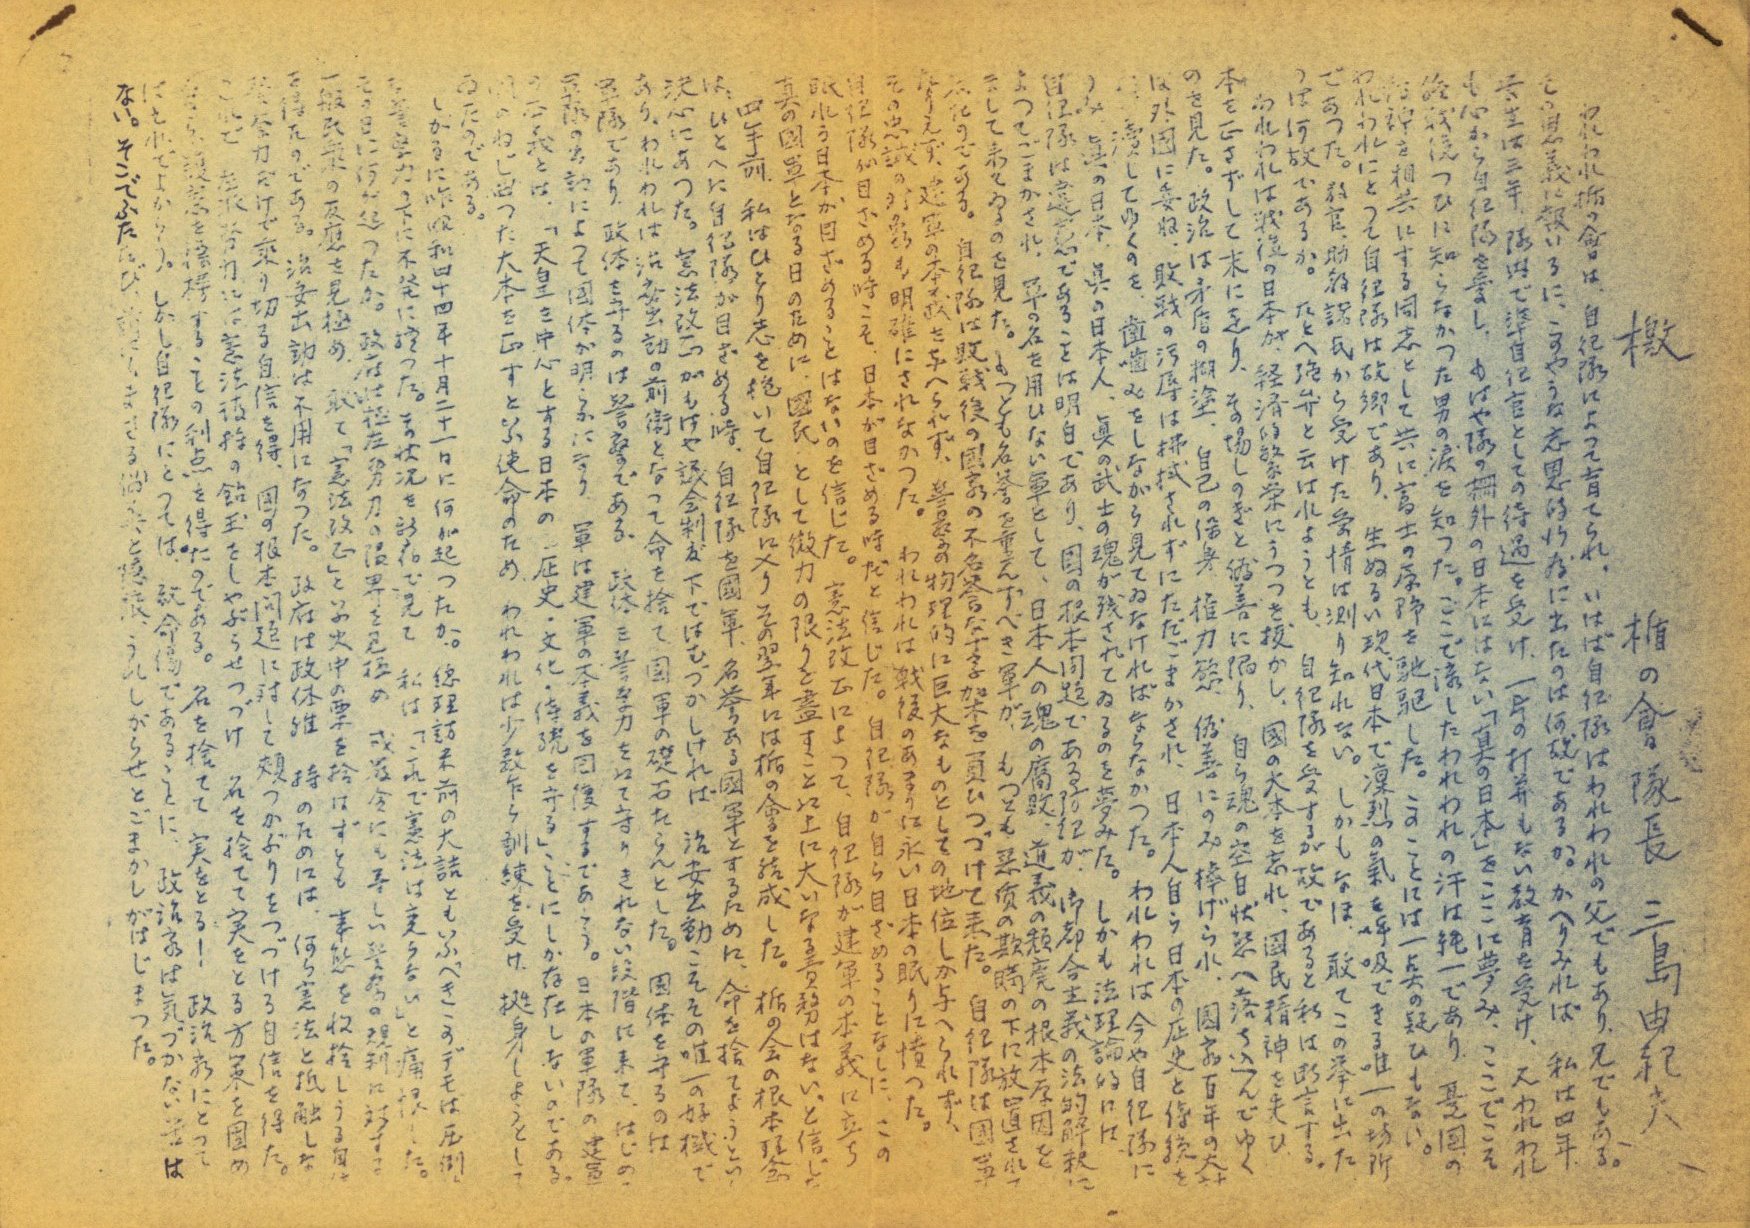 檄
楯の會隊長 三島由紀夫
われわれ楯の會は、自衛隊によつて育てられ、いはば自衛隊はわれわれの父でもあり、兄でもある。
その恩義に報いるに、このやうな忘恩的行為に出たのは何故であるか。かへりみれば 私は四年、
学生は三年、隊内で準自衛官としての待遇を受け、一片の打算もない教育を受け、又われわれ
も心から自衛隊を愛し、もはや隊の柵外の日本にはない「真の日本」をここに夢み、ここでこそ
終戦後つひに知らなかつた男の涙を知つた。ここで流したわれわれの汗は純一であり、憂国の
精神を相共にする同志として共に富士の原野を馳駆した。このことには一点の疑ひもない。
われわれにとつて自衛隊は故郷であり、生ぬるい現代日本で凛烈の氣を呼吸できる唯一の場所
であつた。教官、助教諸氏から受けた愛情は測り知れない。しかもなほ、敢てこの挙に出た
のは何故であるか。たとへ強弁と云はれようとも、自衛隊を愛するが故であると私は断言する。
われわれは戦後の日本が、経済的繁栄にうつつを抜かし、國の大本を忘れ、國民精神を失ひ、
本を正さずして末に走り、その場しのぎと偽善に陥り、自ら魂の空白状態へ落ち込んでゆく
のを見た。政治は矛盾の糊塗、自己の保身、権力慾、偽善にのみ捧げられ、國家百年の大計
は外國に委ね、敗戦の汚辱は払拭されずにただごまかされ、日本人自ら日本の歴史と傳統を
潰してゆくのを、歯噛みをしながら見てゐなければならなかつた。われわれは今や自衛隊に
のみ、真の日本、真の日本人、真の武士の魂が残されてゐるのを夢みた。しかも法理論的には、
自衛隊は違憲であることは明白であり、国の根本問題である防衛が、御都合主義の法的解釈に
よつてごまかされ、軍の名を用ひない軍として、日本人の魂の腐敗、道義の頽廃の根本原因を
なして来てゐるのを見た。もつとも名誉を重んずべき軍が、もつとも悪質の欺瞞の下に放置されて
来たのである。自衛隊は敗戦後の國家の不名誉な十字架を負ひつづけて来た。自衛隊は国軍
たりえず、建軍の本義を与へられず、警察の物理的に巨大なものとしての地位しか与へられず、
その忠誠の対象も明確にされなかつた。われわれは戦後のあまりに永い日本の眠りに憤つた。
自衛隊が目ざめる時こそ、日本が目ざめる時だと信じた。自衛隊が自ら目ざめることなしに、この
眠れる日本が目ざめることはないのを信じた。憲法改正によつて、自衛隊が建軍の本義に立ち
真の國軍となる日のために、國民として微力の限りを盡すこと以上に大いなる責務はない、と信じた。
四年前、私はひとり志を抱いて自衛隊に入り、その翌年には楯の會を結成した。楯の会の根本理念
は、ひとへに自衛隊が目ざめる時、自衛隊を國軍、名誉ある國軍とするために、命を捨てようといふ
決心にあつた。憲法改正がもはや議会制度下ではむづかしければ、治安出動こそその唯一の好機で
あり、われわれは治安出動の前衛となつて命を捨て、国軍の礎石たらんとした。国体を守るのは
軍隊であり、政体を守るのは警察である。政体を警察力を以て守りきれない段階に来て、はじめて
軍隊の出動によつて国体が明らかになり、軍は建軍の本義を回復するであらう。日本の軍隊の建軍
の本義とは、「天皇を中心とする日本の歴史・文化・伝統を守る」ことにしか存在しないのである。
国のねぢ曲つた大本を正すといふ使命のため、われわれは少数乍ら訓練を受け、挺身しようとして
ゐたのである。
しかるに昨昭和四十四年十月二十一日に何が起つたか。總理訪米前の大詰ともいふべきこのデモは、圧倒
的な警察力の下に不発に終つた。その状況を新宿で見て、私は「これで憲法は変らない」と痛恨した。
その日に何が起つたか。政府は極左勢力の限界を見極め、戒厳令にも等しい警察の規制に対する
一般民衆の反應を見極め、敢て「憲法改正」といふ火中の栗を拾はずとも、事態を収拾しうる自信
を得たのである。治安出動は不用になつた。政府は政体維持のためには、何ら憲法と抵触しな
い警察力だけで乗り切る自信を得、國の根本問題に対して頬つかぶりをつづける自信を得た。
これで、左派勢力には憲法護持の飴玉をしやぶらせつづけ、名を捨てて実をとる方策を固め、
自ら、護憲を標榜することの利点を得たのである。名を捨てて、実をとる！政治家にとつて
はそれでよからう。しかし自衛隊にとつては、致命傷であることに、政治家は気づかない筈は
ない。そこでふたたび、前にもまさる偽善と隠蔽、うれしがらせとごまかしがはじまつた。